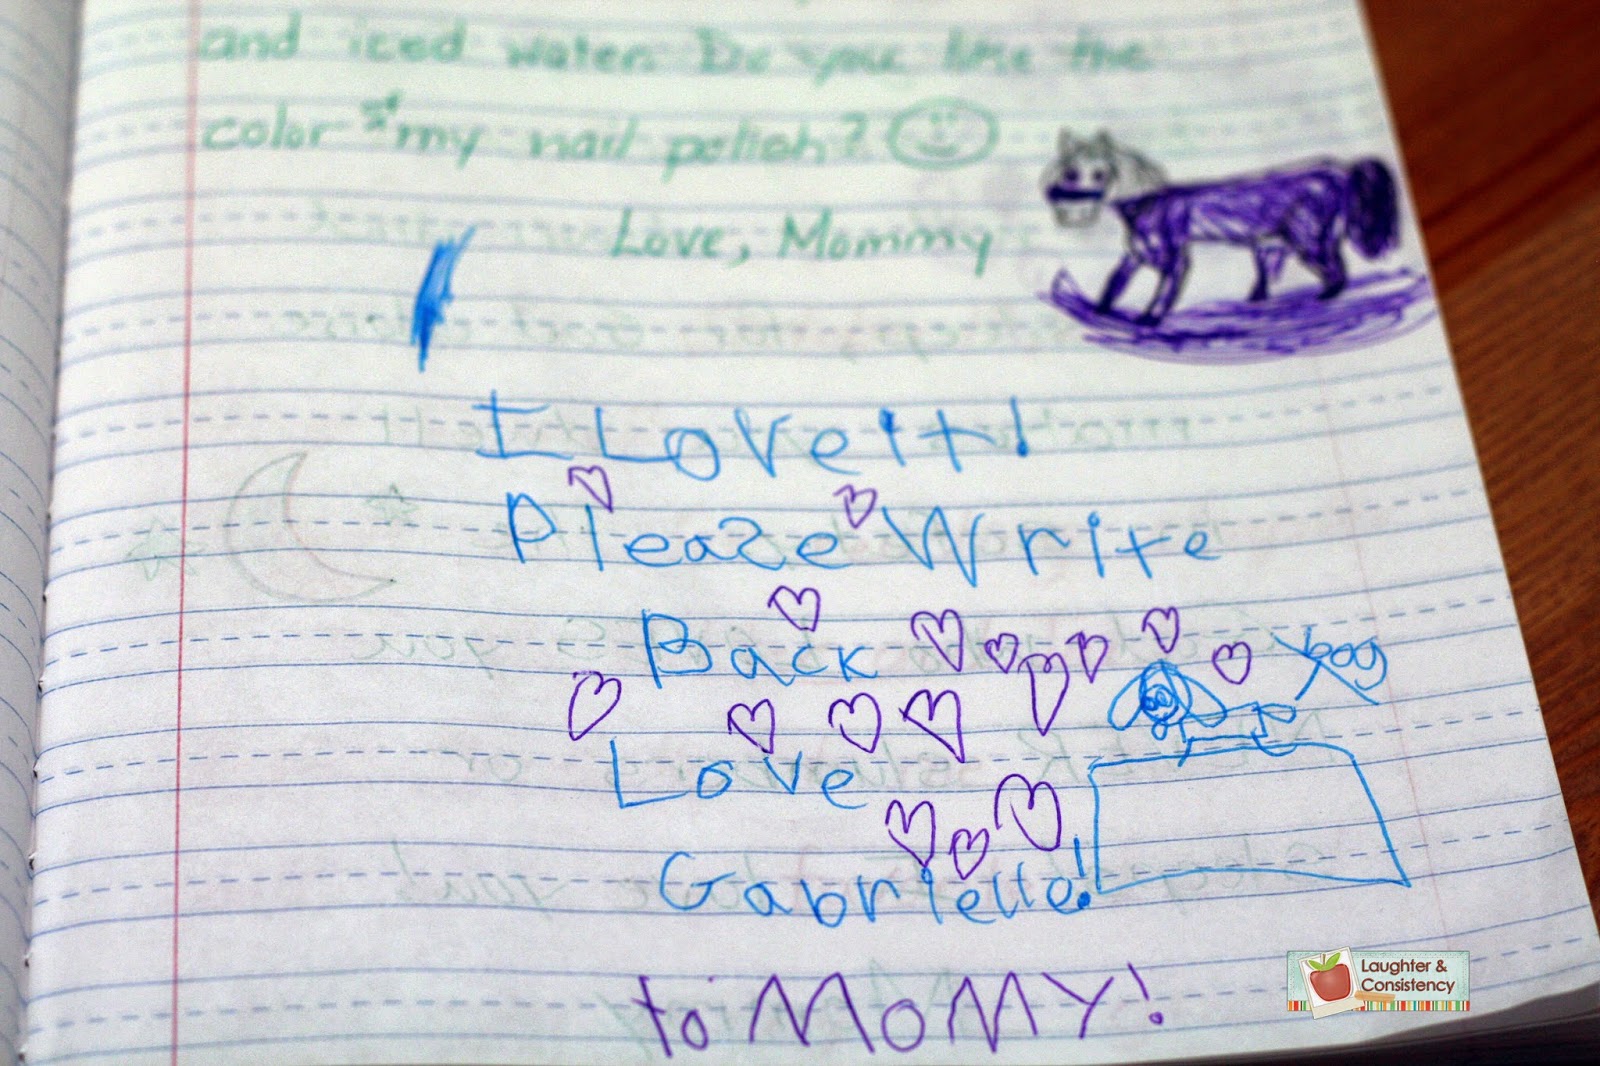 and iced water. Do you like the
color of my nail polish?
Love, Mommy
I Love it!
Please Write
Back
Love
Gabrielle!
to MoMMY!
Laughter &
Consistency